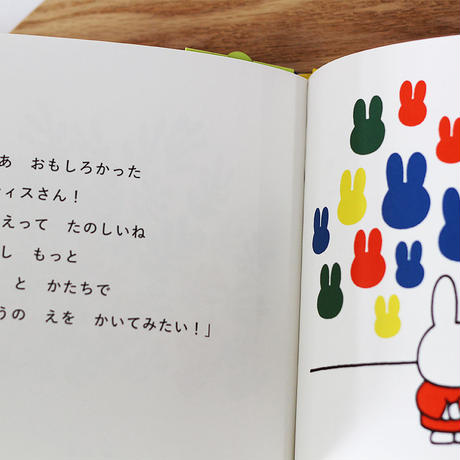 あ　おもしろかった
ィスさん！
えって　たのしいね
し　もっと
と　かたちで
うの　えを　かいてみたい！」